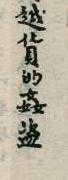 越貨的姦盜